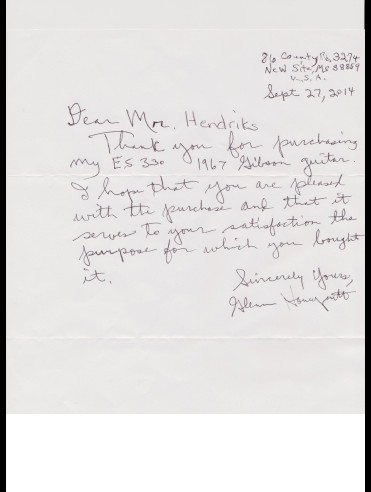 86 County Rd, 3274
New Site, Ms 38859
U.S.A.
Sept 27, 2014
Dear Mr. Hendriks
Thank you for purchasing
my ES 330 1967 Gibson guitar.
I hope that you are pleased
with the purchase and that it
serves to your satisfaction the
purpose for which you bought
it.
Sincerely Yours,
Glenn